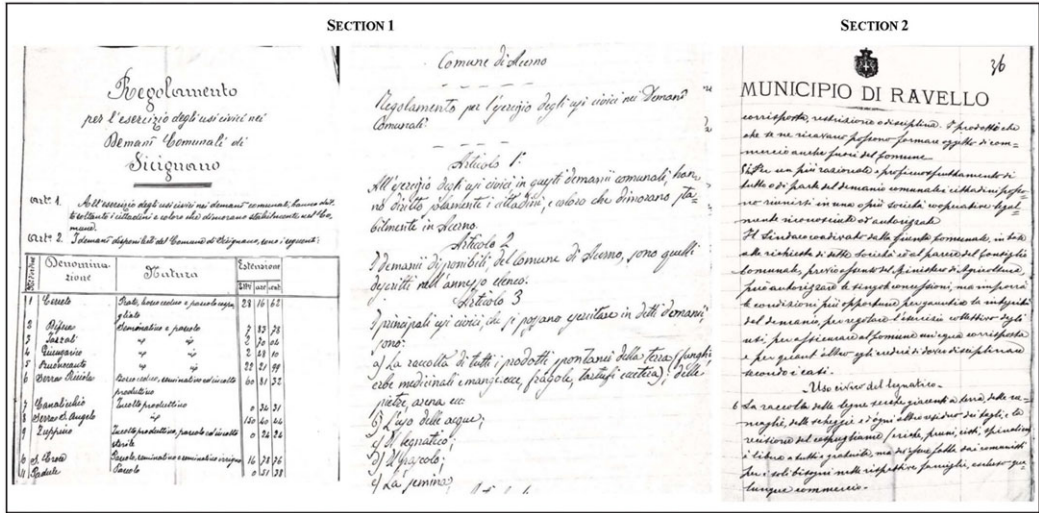 SECTION 1
SECTION 2
Regolamento
per l'esercizio degli usi civici nei
Demanî Comunali di
Sicignano
Art. 1. All'esercizio degli usi civici nei demanî comunali, hanno dirit-
to soltanto i cittadini e coloro che dimorano stabilmente nel Co-
mune.
Art. 2. I demanî disponibili del Comune di Sicignano, sono i seguenti:
Denomina-
zione
Natura
Estensione
1 Cerreto Prato, bosco ceduo e pascolo cespu-
gliato 28 16 62
2 Seminativo e pascolo 7 83 78
3 " " 2 70 04
4 " " 2 28 10
5 " " 22 21 99
6 Serra Bosco ceduo, seminativo ed incolto
produttivo 60 81 32
7 Incolto produttivo 0 34 31
8 Serra S. Angelo " 150 40 44
9 Zuppino Incolto produttivo, pascolo ed incolto
sterile 0 24 24
Pascolo, seminativo e seminativo irriguo 16 78 76
11 Padule Pascolo 0 51 38
Comune di Acerno
Regolamento per l'esercizio degli usi civici nei Demani
Comunali.
Articolo 1º
All'esercizio degli usi civici in questi demanii comunali, han-
no diritto solamente i cittadini, e coloro che dimorano sta-
bilmente in Acerno.
Articolo 2
I demanii disponibili, del comune di Acerno, sono quelli
descritti nell'annesso elenco.
Articolo 3
I principali usi civici, che si possano esercitare in detti demanii
sono:
a) La raccolta di tutti i prodotti spontanei della terra (funghi,
erbe medicinali e mangerecce, fragole, tartufi eccetera); delle
pietre, arena ecc
b) L'uso delle acque;
c) Il legnatico;
d) Il pascolo;
e) La semina;
36
MUNICIPIO DI RAVELLO
corrisposta, restrizione o disciplina. I prodotti che
che se ne ricavano possono formare oggetto di com-
mercio anche fuori del Comune.
Per un più razionale e proficuo sfruttamento di
tutto o di parte del demanio comunale i cittadini posso-
no riunirsi in una o più società cooperative legal-
mente riconosciute ed autorizzate
Il Sindaco coadiuvato dalla giunta comunale, in base
alle richieste di dette società ed al parere del Consiglio
Comunale, previo assenso del Ministero di Agricoltura,
può autorizzare le singole concessioni, ma imporrà
le condizioni più opportune per garantire la integrità
del demanio, per regolare l'esercizio collettivo degli
usi, per assicurare al Comune un'equa corrisposta
e per quant'altro egli crederà di dover disciplinare
secondo i casi.
Uso civico del legnatico.
6 La raccolta delle legna secche giacenti a terra, delle ra-
maglie, delle scheggie ed ogni altro residuo dei tagli, e la
recisione del cespugliame
è libera a tutti e gratuita, ma dev'esser fatta dai comunisti
per i soli bisogni nelle rispettive famiglie, escluso qua-
lunque commercio.